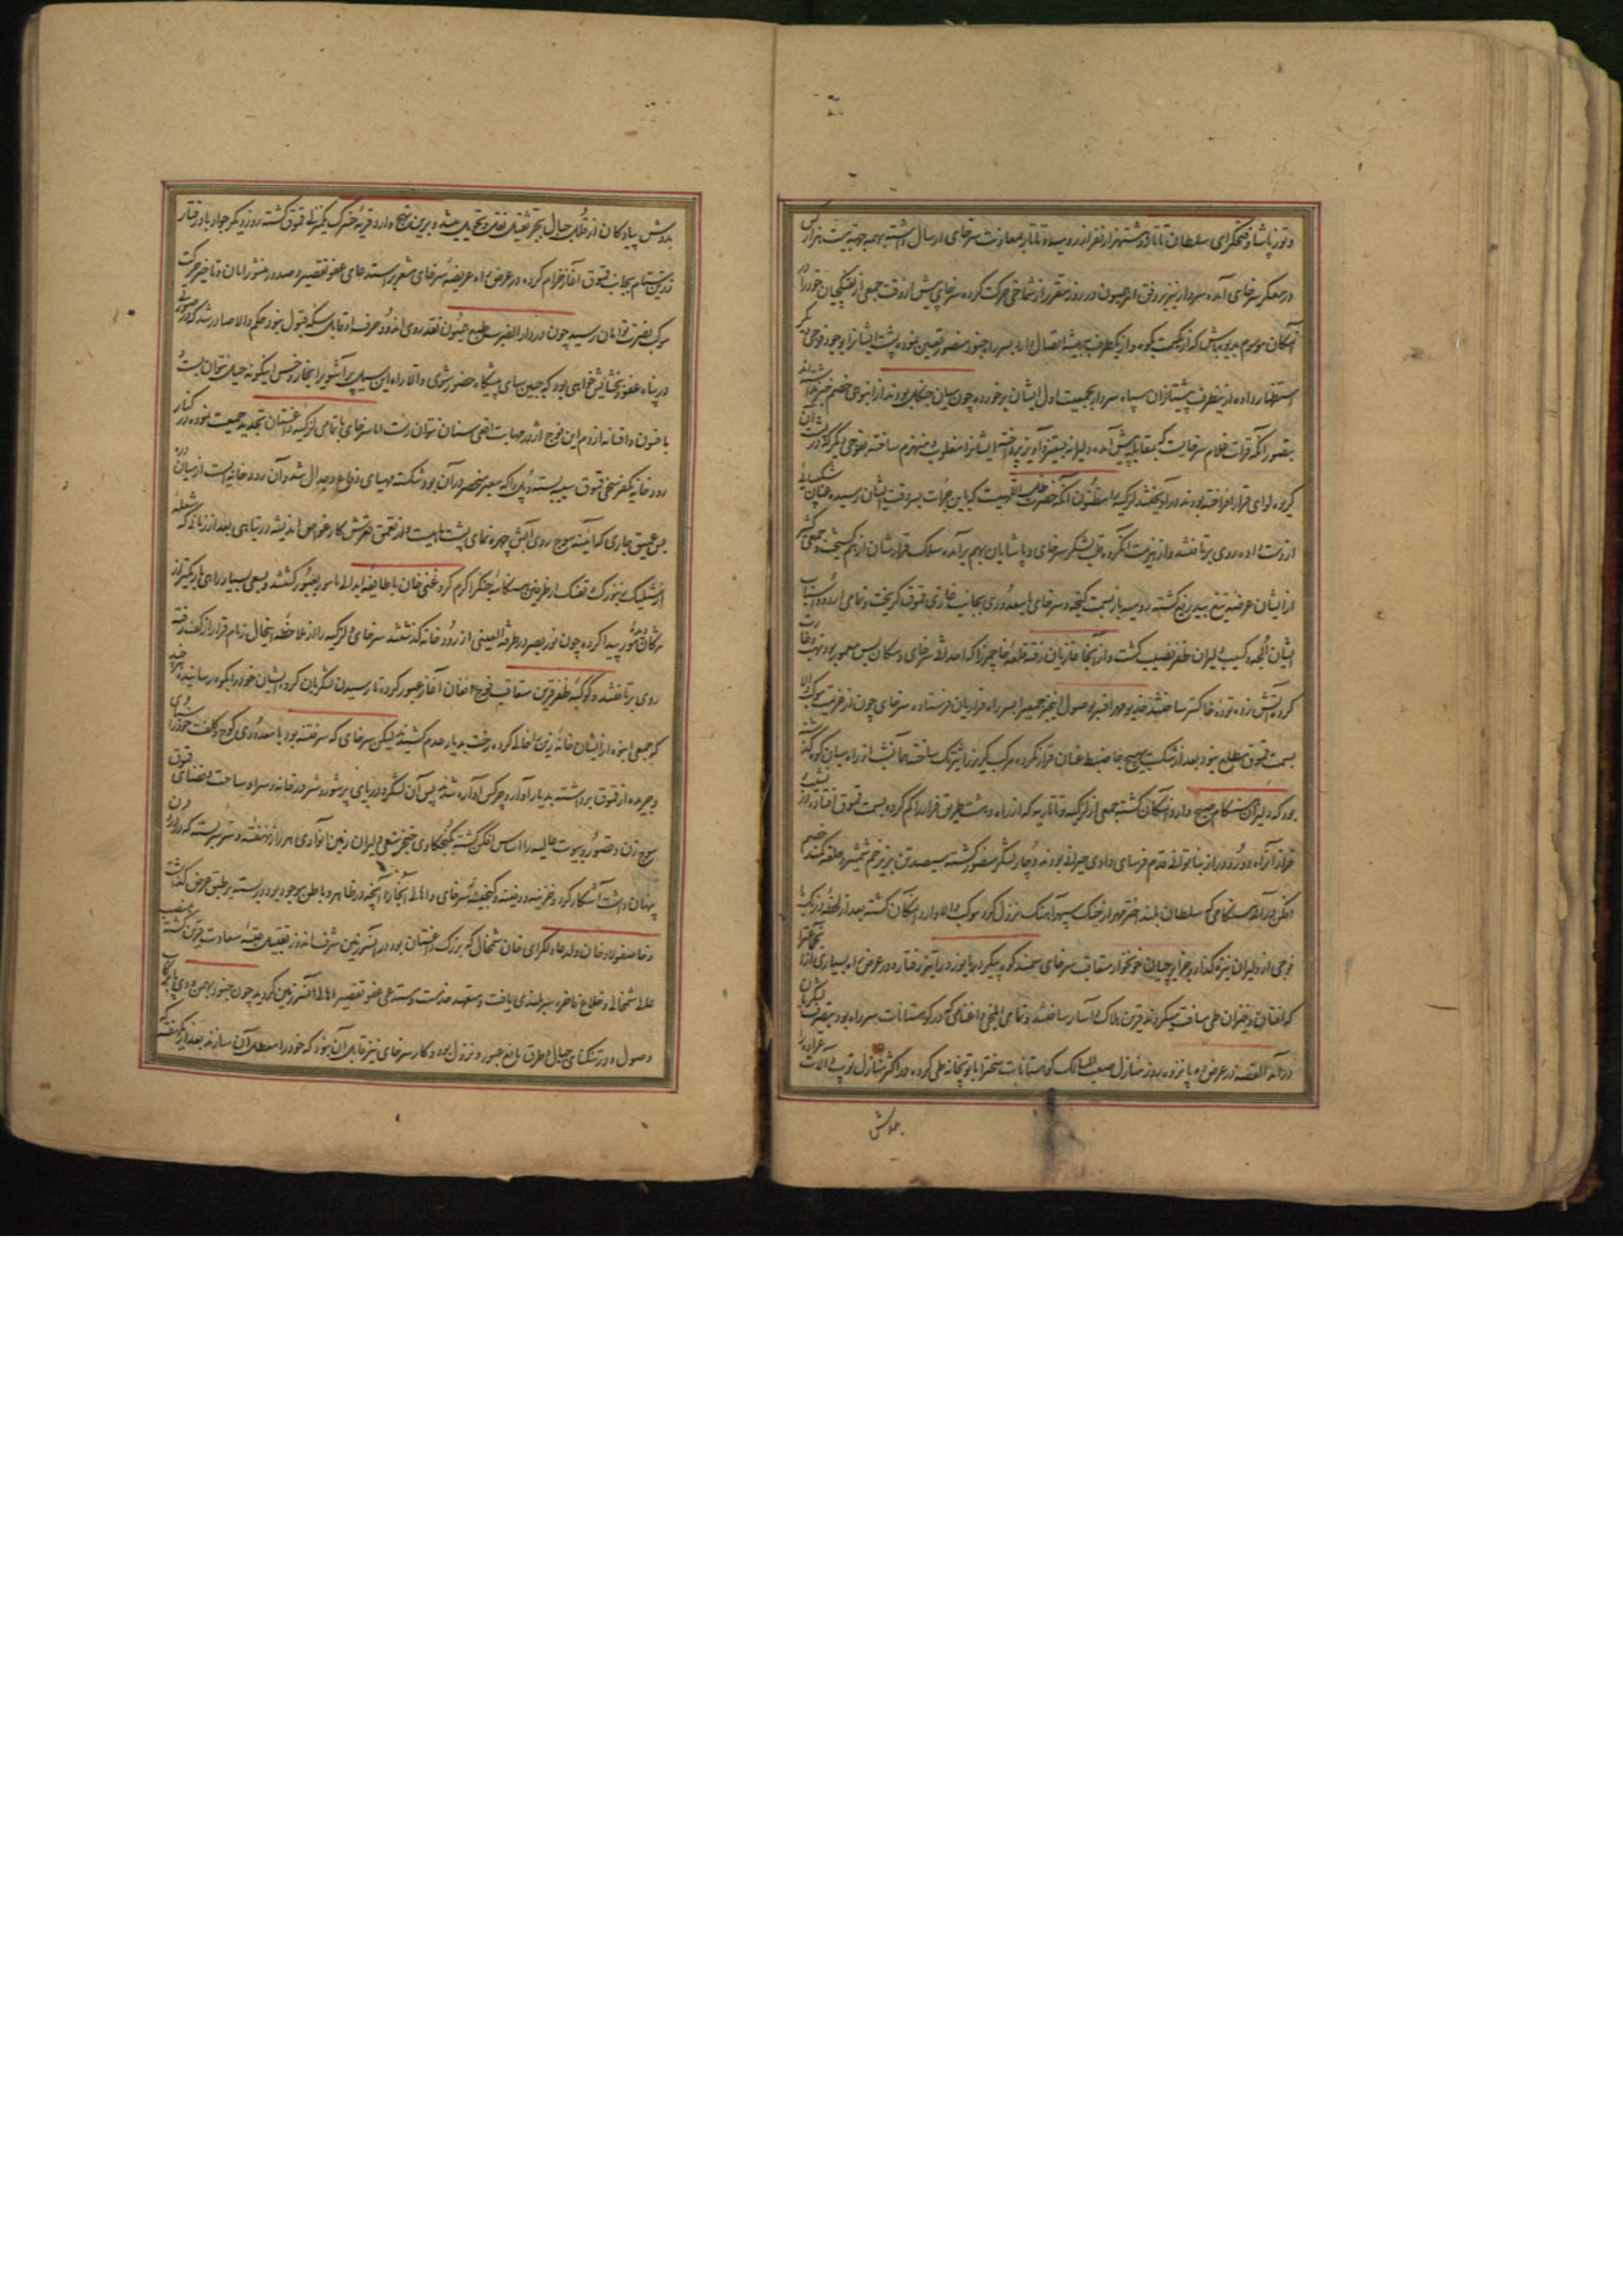 و توز پاشا و فتحگرای سلطان تاتار و هشتهزار نفر از رومیه و تاتار بمعاونت سرخای ارسال داشته بهمه جهة بیست هزار کس
در معسکر سرخای آمده سردار نیز بر وفق امر همیون در روز مقرر از شماخی حرکت کرده سرخای پیش از وقت جمعی از تفنگچیان خود را در
مکان موسوم بدیوه باتن که از یکسمت بکوه و از یکطرف به بیشه اتصال دارد بسر راه جنود منصور تعیین نموده پشت ایشانرا بوجود فوجی دیگر
استظهار داده ازینطرف پیشتازان سپاه سردار بجمعیت اول ایشان برخورده چون میان جنگل بودند از انبوهی خصم خبر نداشته اند
بتصور آنکه قراولان غلام سرخایست که بمقابله پیش آمده دلیرانه بستیز و آویز پرداخته ایشانرا مغلوب و منهزم ساخته بفوجی دیگر که در پشت آن
گروه لوای قرار افراخته بودند درآویختند لزگیه را مظنون آنکه حضرت ظل اللهیست که باین جرأت بسر وقت ایشان رسیده عنان شکیبائی
از دست داده روی برتافتند و از هزیمت آنگروه قلب لشکر سرخای و پاشایان بهم برآمده سلک قرارشان از هم گسیخت و جمعی کثیر
از ایشان عرضه تیغ بیدریغ گشته رومیه باز بسمت گنجه و سرخای با معدودی بجانب غازی قموق گریخت و تمامی اردو و اسباب
ایشان الجه و کسیب دلیران ظفر نصیب گشت و از آنجا غازیان رفته قلعه خاچمز را که احداث سرخای و مکان بس معمور بود نهب و غارت
کرده آتش زده توده خاکستر ساختند خدیو مهر افسر بوصول اینخبر جمعیرا بسر راه فراریان فرستاده سرخای چون از عزیمت موکب والا
بسمت قموق مطلع بود بعد از شکست بهیچ جا ضبط عنان قرار نکرده مرکب گریز را تیزتک ساخته همانشب از راه میان کوه گذشته
بود که دلیران هنگام صبح وارد آنمکان گشته جمعی از لزگیه و تاتاریه که از راه دهشت طریق فرار را گم کرده بسمت قموق افتاده و در نشیب
فراز آنراه دور و دراز بناتوانی قدم فرسای وادی حیرانی بودند دچار لشکر منصور گشته سیصد تن بزیر خم شمشیر و حلقه کمند خصم
افکن درآمد هنگامی که سلطان بلند اختر مهر از خنگ سپهر آهنگ نزول کرد موکب والا وارد آنمکان گشته بعد از لحظه درنگ با
فوجی از دلیران نیزه گذار و جزایرچیان خونخوار متعاقب سرخای سمند کوه پیکر دریا نورد را تیز رفتار و در عرض راه بسیاری از آن جماعترا
که افتان و خیزان طی مسافت میکردند قرین هلاک و اسار ساختند و تمامی ایلخی و اغنامی که در کوهستانات سر راه بود بتصرف لشکریان
درآمد القصه در عرض پانزده روز منازل صعب المسالک کوهستانات سخترا با توپخانه طی کرده در اکثر منازل توپ و آلات سه عراده را
بدوش
بدوش پیادگان از قلل جبال بجر ثقیل نقل و تحویل میشد و برین نهج وارد قریه خسرک یکمنزلی قموق گشته روز دیگر جواد باد رفتار
زرین ستام بجانب قموق آغاز خرام کرده در عرض راه عریضه سرخای مشعر بر استدعای عفو تقصیر و صدور منشور امان و تاخیر حرکت
موکب نصرت توامان رسید چون در دار الضرب طبع همیون نقد روی اندود حرف او قابل سکه قبول نبود حکم والا صادر شد که در صورتی
در پناه عفو و بخشایش خواهی بود که جبین سای پیشگاه حضور شوی و الا راه این سیل پر آشوب را بخار و خس اینگونه حیل نتوان بست
با فسون و افسانه از دم این فوج اژدر مهابت افعی سنان نتوان رست اما سرخای با تمامی لزگیه داغستان تجدید جمعیت نموده در کنار
رودخانه یکفرسخی قموق سیبه بسته و پل را که معبر منحصر در آن بود شکسته مهیای دفاع و جدال شد و آن رودخانه ایست از میان دره
بس عمیق جاری که آئینه موج روی آبش چهره نمای پشت ماهیست و از تعمق قعرش کار غواص اندیشه در تباهی بعد از زمانی که شعله
از شلیک زنبورک و تفنگ از طرفین هنگامه جنگ را گرم کرد غنی خان با طایفه ابدالی مامور بعبور گشتند و بسعی بسیار راهی باریکتر از
مژگان مور پیدا کرده چون نور بصر در طرفة العینی از رودخانه گذشتند سرخای و لزگیه را از ملاحظه اینحال زمام قرار از کف رفته
روی برتافتند و کوکبه ظفر قرین متعاقب فوج افغان آغاز عبور کرده تا رسیدن لشکریان گروه ایشان خود را بکوه رسانیده هر چند
که جمعی انبوه از ایشان خانه زین را خالی کرده رخت بدیار عدم کشیدند لیکن سرخای که سر فتنه بود با معدودی کوچ و کلفت خود را سبای
و جریده از قموق برداشته بدیار آوار و چرکس آواره شد پس آن لشکر دریای پر شور و شر در خانه و سرا و ساحت و فضای قموق
موج زن و قصور و بیوت عالیه را اساس افکن گشته بکنجکاوی خنجر سعی دلیران زمین آنوادی هر راز نهفته و سر بسته که در دل درون
پنهان داشت آشکار کرد و خزینه و دفینه و گنجینه سرخای و اهالی آنجا را آنچه در ظاهر و باطن موجود بود در بسته بر طبق عرض گذاشت
و خاصفولاد خان ولد عادلگرای خان شمخال که بزرگ داغستان بود در آنسرزمین شرف اندوز تقبیل عتبه سعادت قرین گشته بمنصب
علاء شمخالی و خلاع فاخره سربلندی یافت و متعهد خدمت و مستدعی عفو تقصیر اهالی آنسرزمین گردید چون جنود بهمن و دی پا برکاب
وصول و در تنگنای جبال و طرق مانع عبور و نزول بود و کار سرخای نیز قابل آن نبود که خود را معطل آن سازند بعد از یکهفته که